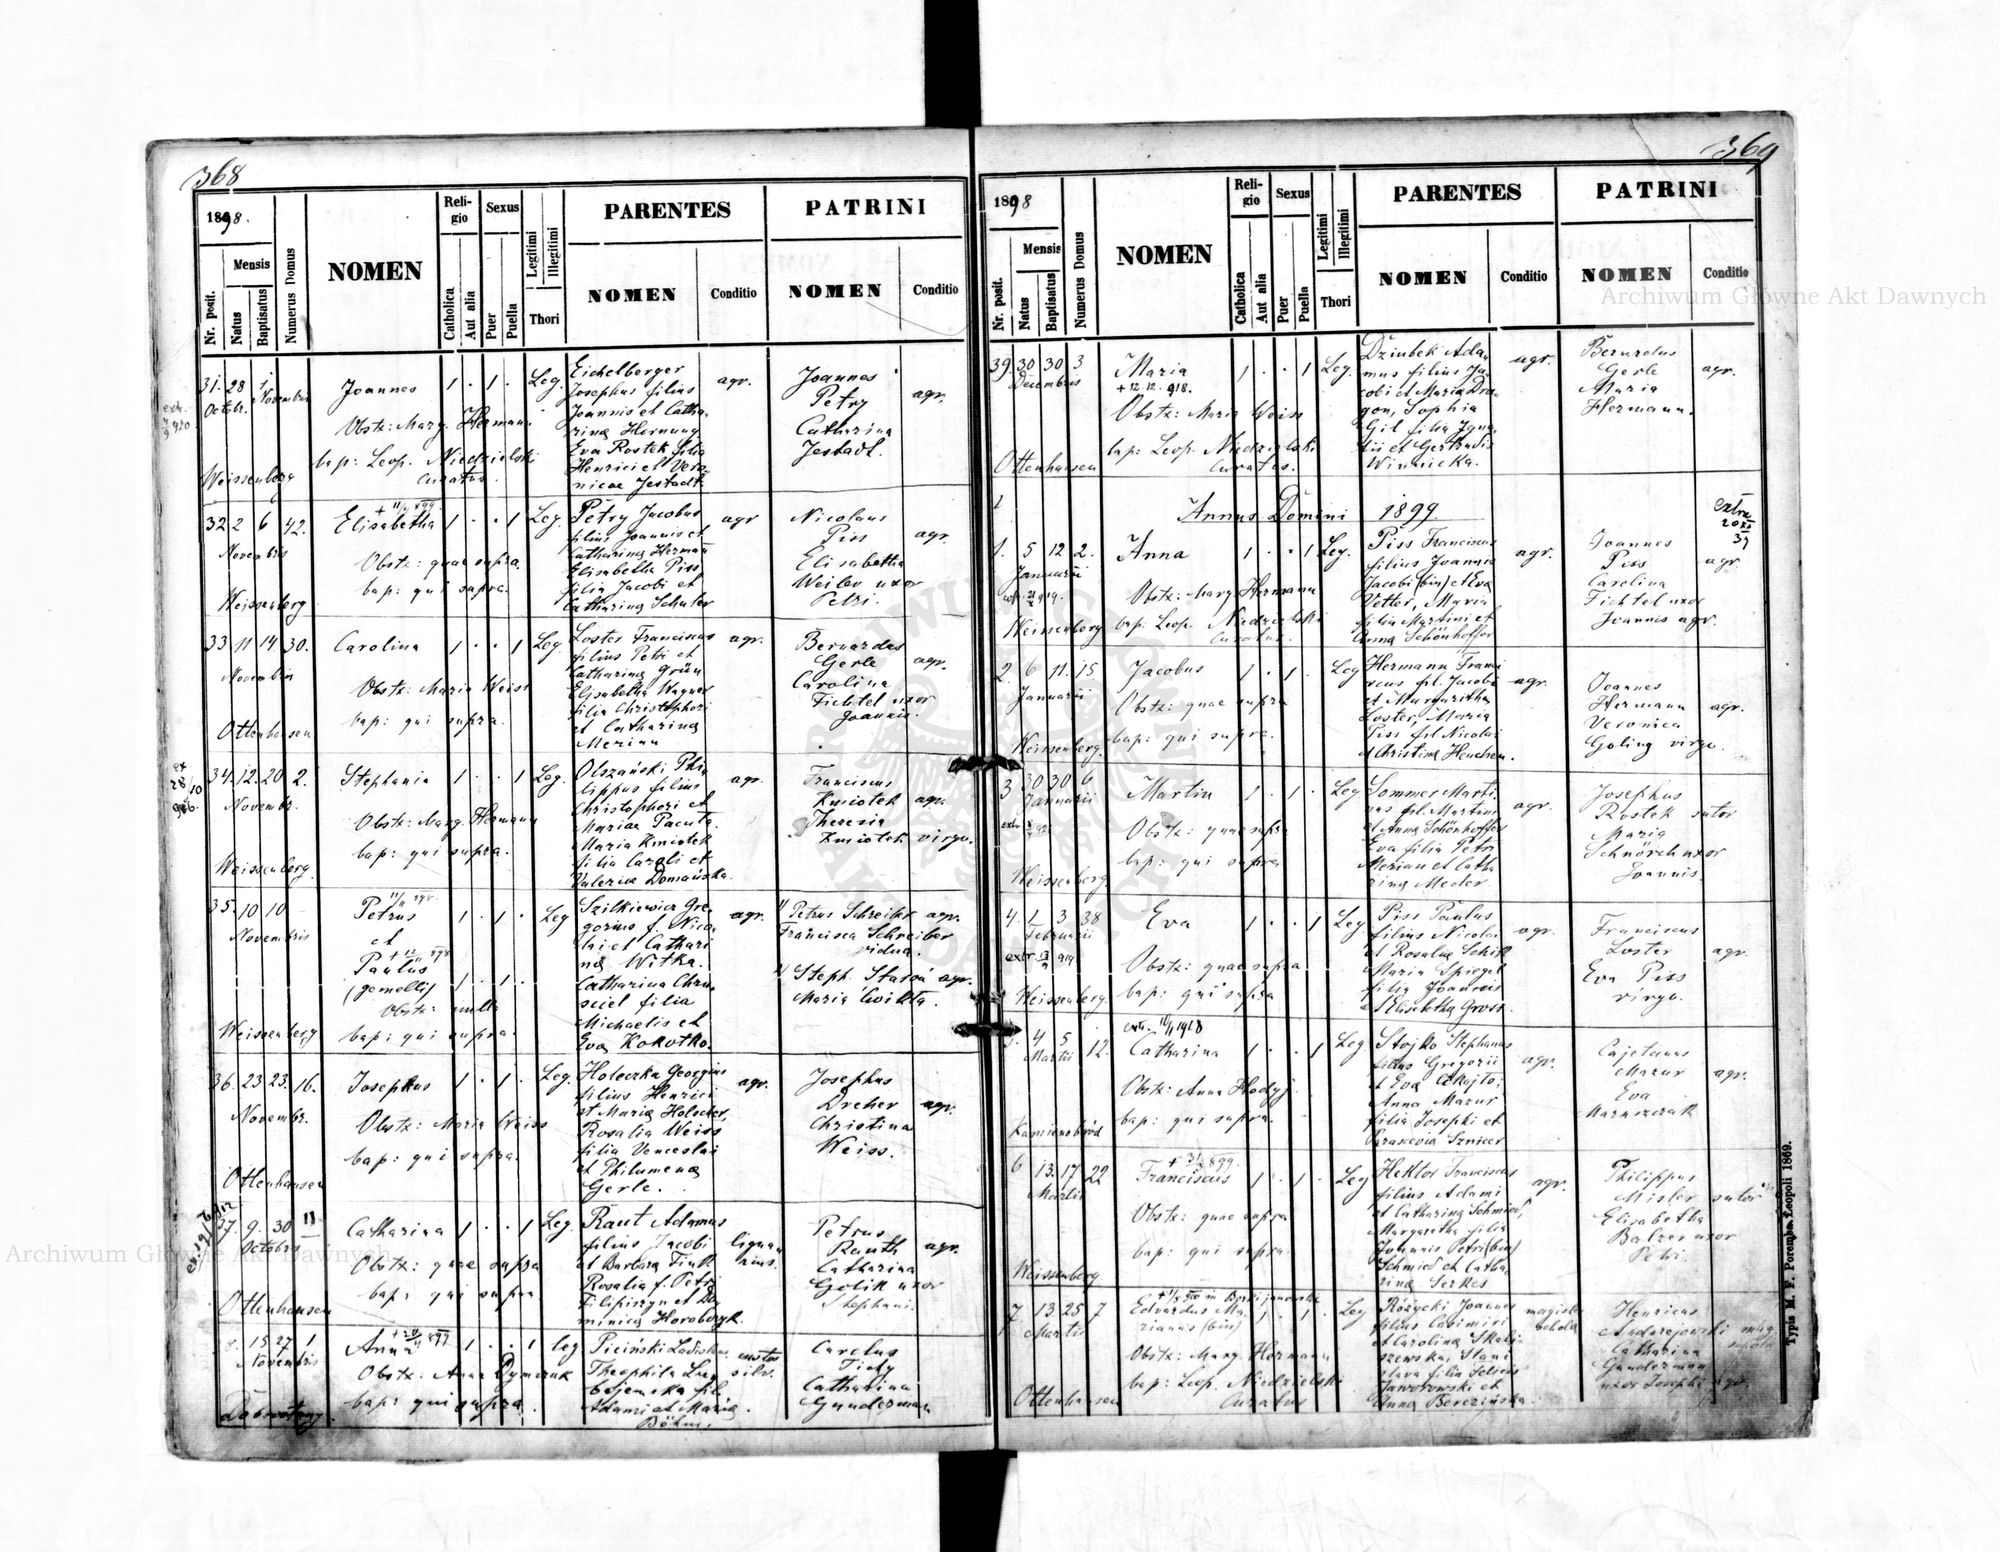 368
1898.
Nr. posit.
Mensis
Natus
Baptisatus
Numerus Domus
NOMEN
Religio
Catholica
Aut alia
Sexus
Puer
Puella
Legitimi
Illegitimi
Thori
PARENTES
NOMEN
Conditio
PATRINI
NOMEN
Conditio
31. 28 1 Joannes 1 . 1 . Leg. Eichelberger agr. Joannes agr.
Octobr. Novembris
Josephus filius Petry
Joannis et Catha- Catharina
Obstx: Marg. Hermann
rina Hornung Jestadt.
bap: Leop. Niedzielski Eva Rostek filia
Curatus. Henrici et Vero-
Weissenberg nicae Jestadt
32 2 6 42. Elisabetha 1 . . 1 Leg. Petry Jacobus agr Nicolaus agr.
Novembris filius Joannis et Piss
Obstx: quae supra Catharina Herman Elisabetha
bap: qui supra. Elisabetha Piss Weiler uxor
filia Jacobi et Petri.
Weissenberg Catharina Schuler
33 11 14 30. Carolina 1 . . 1 Leg. Loster Franciscus agr. Bernardus
Novembris filius Petri et Gerle agr.
Obstx: Maria Weiss Catharina Grün Carolina
Elisabetha Wagner Fichtel uxor
bap: qui supra. filia Christophori Joannis.
Ottenhausen et Catharina
Merian
34. 12. 20 2. Stephania 1 . . 1 Leg. Olszański Phi- agr. Franciscus
Novembr. lippus filius Kmiotek agr.
Obstx: Marg. Hermann Christophori et Theresia
Mariae Pacuta. Kmiotek virgo.
bap: qui supra. Maria Kmiotek
filia Caroli et
Weissenberg. Valeria Domańska.
35. 10 10 Petrus 1 . 1 . Leg Szilkiewicz Gre- agr. 1/ Petrus Schreiber agr.
Novembris et gorius f. Nico- Francisca Schreiber
lai et Cathari vidua.
Paulus na Witka. 2/ Steph. Staroń agr.
(gemelli) 1 . 1 . Catharina Chru- Maria Cwikła.
Obstx: nulla sciel filia
Weissenberg bap: qui supra. Michaelis et
Eva Kokotko.
36. 23 23. 16. Josephus 1 . 1 . Leg. Holeczka Georgius agr. Josephus
Novembr. filius Henrici Dreher agr.
Obstx: Maria Weiss et Maria Holocher, Christina
Rosalia Weiss Weiss.
bap: qui supra. filia Venceslai
Ottenhausen et Philumena
Gerle.
37 9. 30 11 Catharina 1 . . 1 Leg. Raut Adamus Petrus
Octobris filius Jacobi lignarius. Rauth agr.
Obstx: quae supra et Barbara Fink Catharina
bap: qui supra Rosalia f. Petri Golik uxor
Stephani.
Ottenhausen minica Horobczyk.
8. 15 27 1 Anna 1 . . 1 leg Piciński Ladislaus custos Carolus
Novembris Theophila silv. Tichy
Obstx: Anna Catharina
bap: qui supra Adami et Maria Gunderman
Dobrostany. Böhm.
369
1898
Nr. posit.
Mensis
Natus
Baptisatus
Numerus Domus
NOMEN
Religio
Catholica
Aut alia
Sexus
Puer
Puella
Legitimi
Illegitimi
Thori
PARENTES
NOMEN
Conditio
PATRINI
NOMEN
Conditio
39. 30 30 3 Maria 1 . . 1 Leg. Dziubek Ada- agr. Bernardus agr.
Decembris + 12.12. 918. mus filius Ja- Gerle
Obstx: Maria Weiss cobi et Maria Dra- Maria
gon, Sophia Hermann.
bap: Leop. Niedzielski Gil filia Igna-
Curatus. tii et Gertrudis
Ottenhausen Winnicka.
Annus Domini 1899.
1. 5 12 2. Anna 1 . . 1 Leg. Piss Franciscus agr. Joannes agr
Januarii filius Joannis Piss
Obstx: Marg. Hermann Jacobi (bin) et Eva Carolina
Vetter, Maria Fichtel uxor
Weissenberg bap: Leop. Niedzielski filia Martini et Joannis agr.
Curatus. Anna Schönhoffer
2. 6 11. 15 Jacobus 1 . 1 . Leg Hermann Franci- agr. Joannes
Januarii scus fil. Jacobi Hermann agr.
Obstx: quae supra et Margaritha Veronica
Loster, Maria Goling virgo.
Weissenberg. bap: qui supra. Piss fil. Nicolai
et Christina Heuchen.
3 30 30 6 Martin 1 . 1 . Leg Sommer Marti- agr. Josephus
Januarii nus fil. Martini Rostek sutor
Obstx: quae supra et Anna Schönhoffer Maria
bap: qui supra Eva filia Petri Schnörch uxor
Weissenberg Merian et Catha- Joannis.
rina Meder.
4. 1 3 38 Eva 1 . . 1 Leg Piss Paulus agr. Franciscus
Februarii filius Nicolai Loster agr.
Obstx: quae supra et Rosalia Schick Eva Piss
Maria Spiegel virgo.
Weissenberg. bap: qui supra filia Joannis
et Elisabetha Gross.
4 5 12. Catharina 1 . . 1 Leg Stojko Stephanus agr. Cajetanus
Martii filius Gregorii Mazur agr.
Obstx: Anna Hodyj Anna Mazur Eva
bap: qui supra. filia Josephi et
Kamienobród Parascevia Sznicer
6 13. 17 22 Franciscus 1 . 1 . Leg Hektor Franciscus agr. Philippus
Martii filius Adami Mister sutor
Obstx: quae supra et Catharina Schmied, Elisabetha
Margaretha filia Balzer uxor
bap: qui supra. Johannis Petri (bin) Petri.
Weissenberg Schmied et Catha-
rina Serkes
7. 13. 25 7 Edvardus Ma- 1 . 1 . Leg Różycki Joannes magister Henricus
Martii riannis (bin) filius Casimiri schola Andrzejowski
Obstx: Marg. Hermann et Carolina Skali- Catharina
szewska, Stani- Gunderman
bap: Leop. Niedzielski slava filia Felicis uxor Josephi agr.
Ottenhausen Curatus Jaworowski et
Anna Berezińska.
Typis M. F. Poremba Leopoli 1869.
Archiwum Główne Akt Dawnych
Archiwum Główne Akt Dawnych